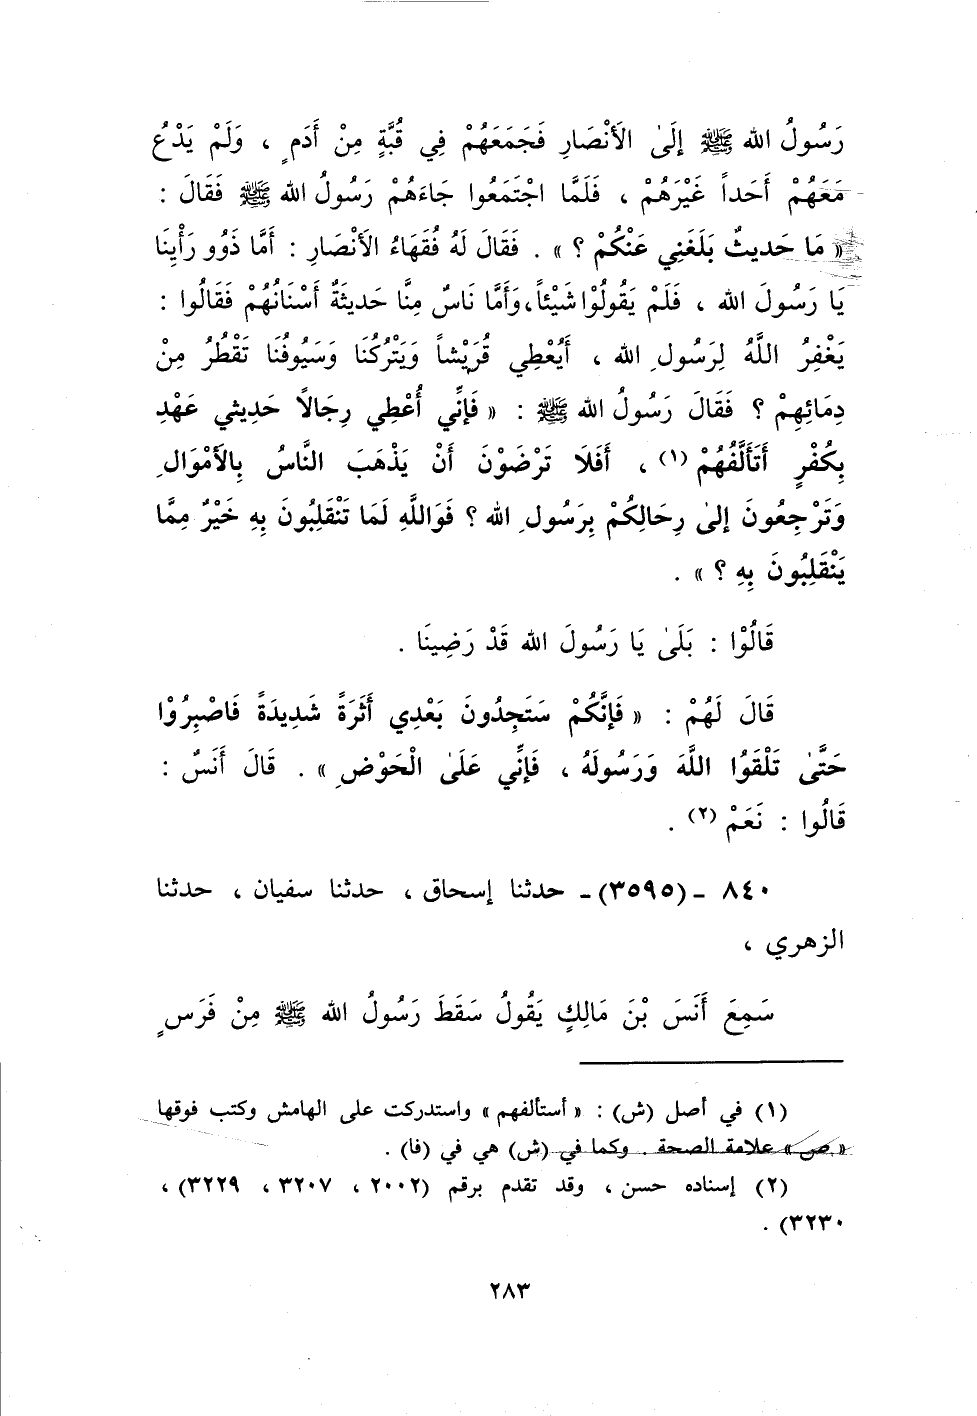 رَسُولُ الله ﷺ إِلَىٰ الأَنْصَارِ فَجَمَعَهُمْ فِي قُبَّةٍ مِنْ أَدَمٍ ، وَلَمْ يَدْعُ
مَعَهُمْ أَحَداً غَيْرَهُمْ ، فَلَمَّا اجْتَمَعُوا جَاءَهُمْ رَسُولُ الله ﷺ فَقَالَ :
« مَا حَديثٌ بَلَغَنِي عَنْكُمْ ؟ » . فَقَالَ لَهُ فُقَهَاءُ الأَنْصَارِ : أَمَّا ذَوُو رَأْيِنَا
يَا رَسُولَ الله ، فَلَمْ يَقُولُوْا شَيْئاً، وَأَمَّا نَاسٌ مِنَّا حَديثَةٌ أَسْنَانُهُمْ فَقَالُوا :
يَغْفِرُ اللَّهُ لِرَسُولِ الله ، أَيُعْطِي قُرَيْشاً وَيَتْرُكُنَا وَسُيوفُنَا تَقْطُرُ مِنْ
دِمَائِهِمْ ؟ فَقَالَ رَسُولُ الله ﷺ : « فَإِنِّي أُعْطِي رِجَالاً حَدِيثي عَهْدِ
بِكُفْرٍ أَتَأَلَّفُهُمْ (١) ، أَفَلَا تَرْضَوْنَ أَنْ يَذْهَبَ النَّاسُ بِالأَمْوَالِ
وَتَرْجِعُونَ إلىٰ رِحَالِكُمْ بِرَسُولِ الله ؟ فَوَاللَّهِ لَمَا تَنْقَلِبُونَ بِهِ خَيْرٌ مِمَّا
يَنْقَلِبُونَ بِهِ ؟ » .
قَالُوْا : بَلَىٰ يَا رَسُولَ الله قَدْ رَضِينَا .
قَالَ لَهُمْ : « فَإِنَّكُمْ سَتَجِدُونَ بَعْدِي أَثَرَةً شَدِيدَةً فَاصْبِرُوْا
حَتَّىٰ تَلْقَوُا اللَّهَ وَرَسُولَهُ ، فَإِنِّي عَلَىٰ الْحَوْضِ » . قَالَ أَنَسٌ :
قَالُوا : نَعَمْ (٢) .
٨٤٠ ـ (٣٥٩٥)ـ حدثنا إسحاق ، حدثنا سفيان ، حدثنا
الزهري ،
سَمِعَ أَنَسَ بْنَ مَالِكٍ يَقُولُ سَقَطَ رَسُولُ الله ﷺ مِنْ فَرَسٍ
(١) في أصل (ش) : « أستألفهم » واستدركت على الهامش وكتب فوقها
« ص » علامة الصحة . وكما في (ش) هي في (فا) .
(٢) إسناده حسن ، وقد تقدم برقم (٢٠٠٢ ، ٣٢٠٧ ، ٣٢٢٩) ،
٣٢٣٠) .
٢٨٣